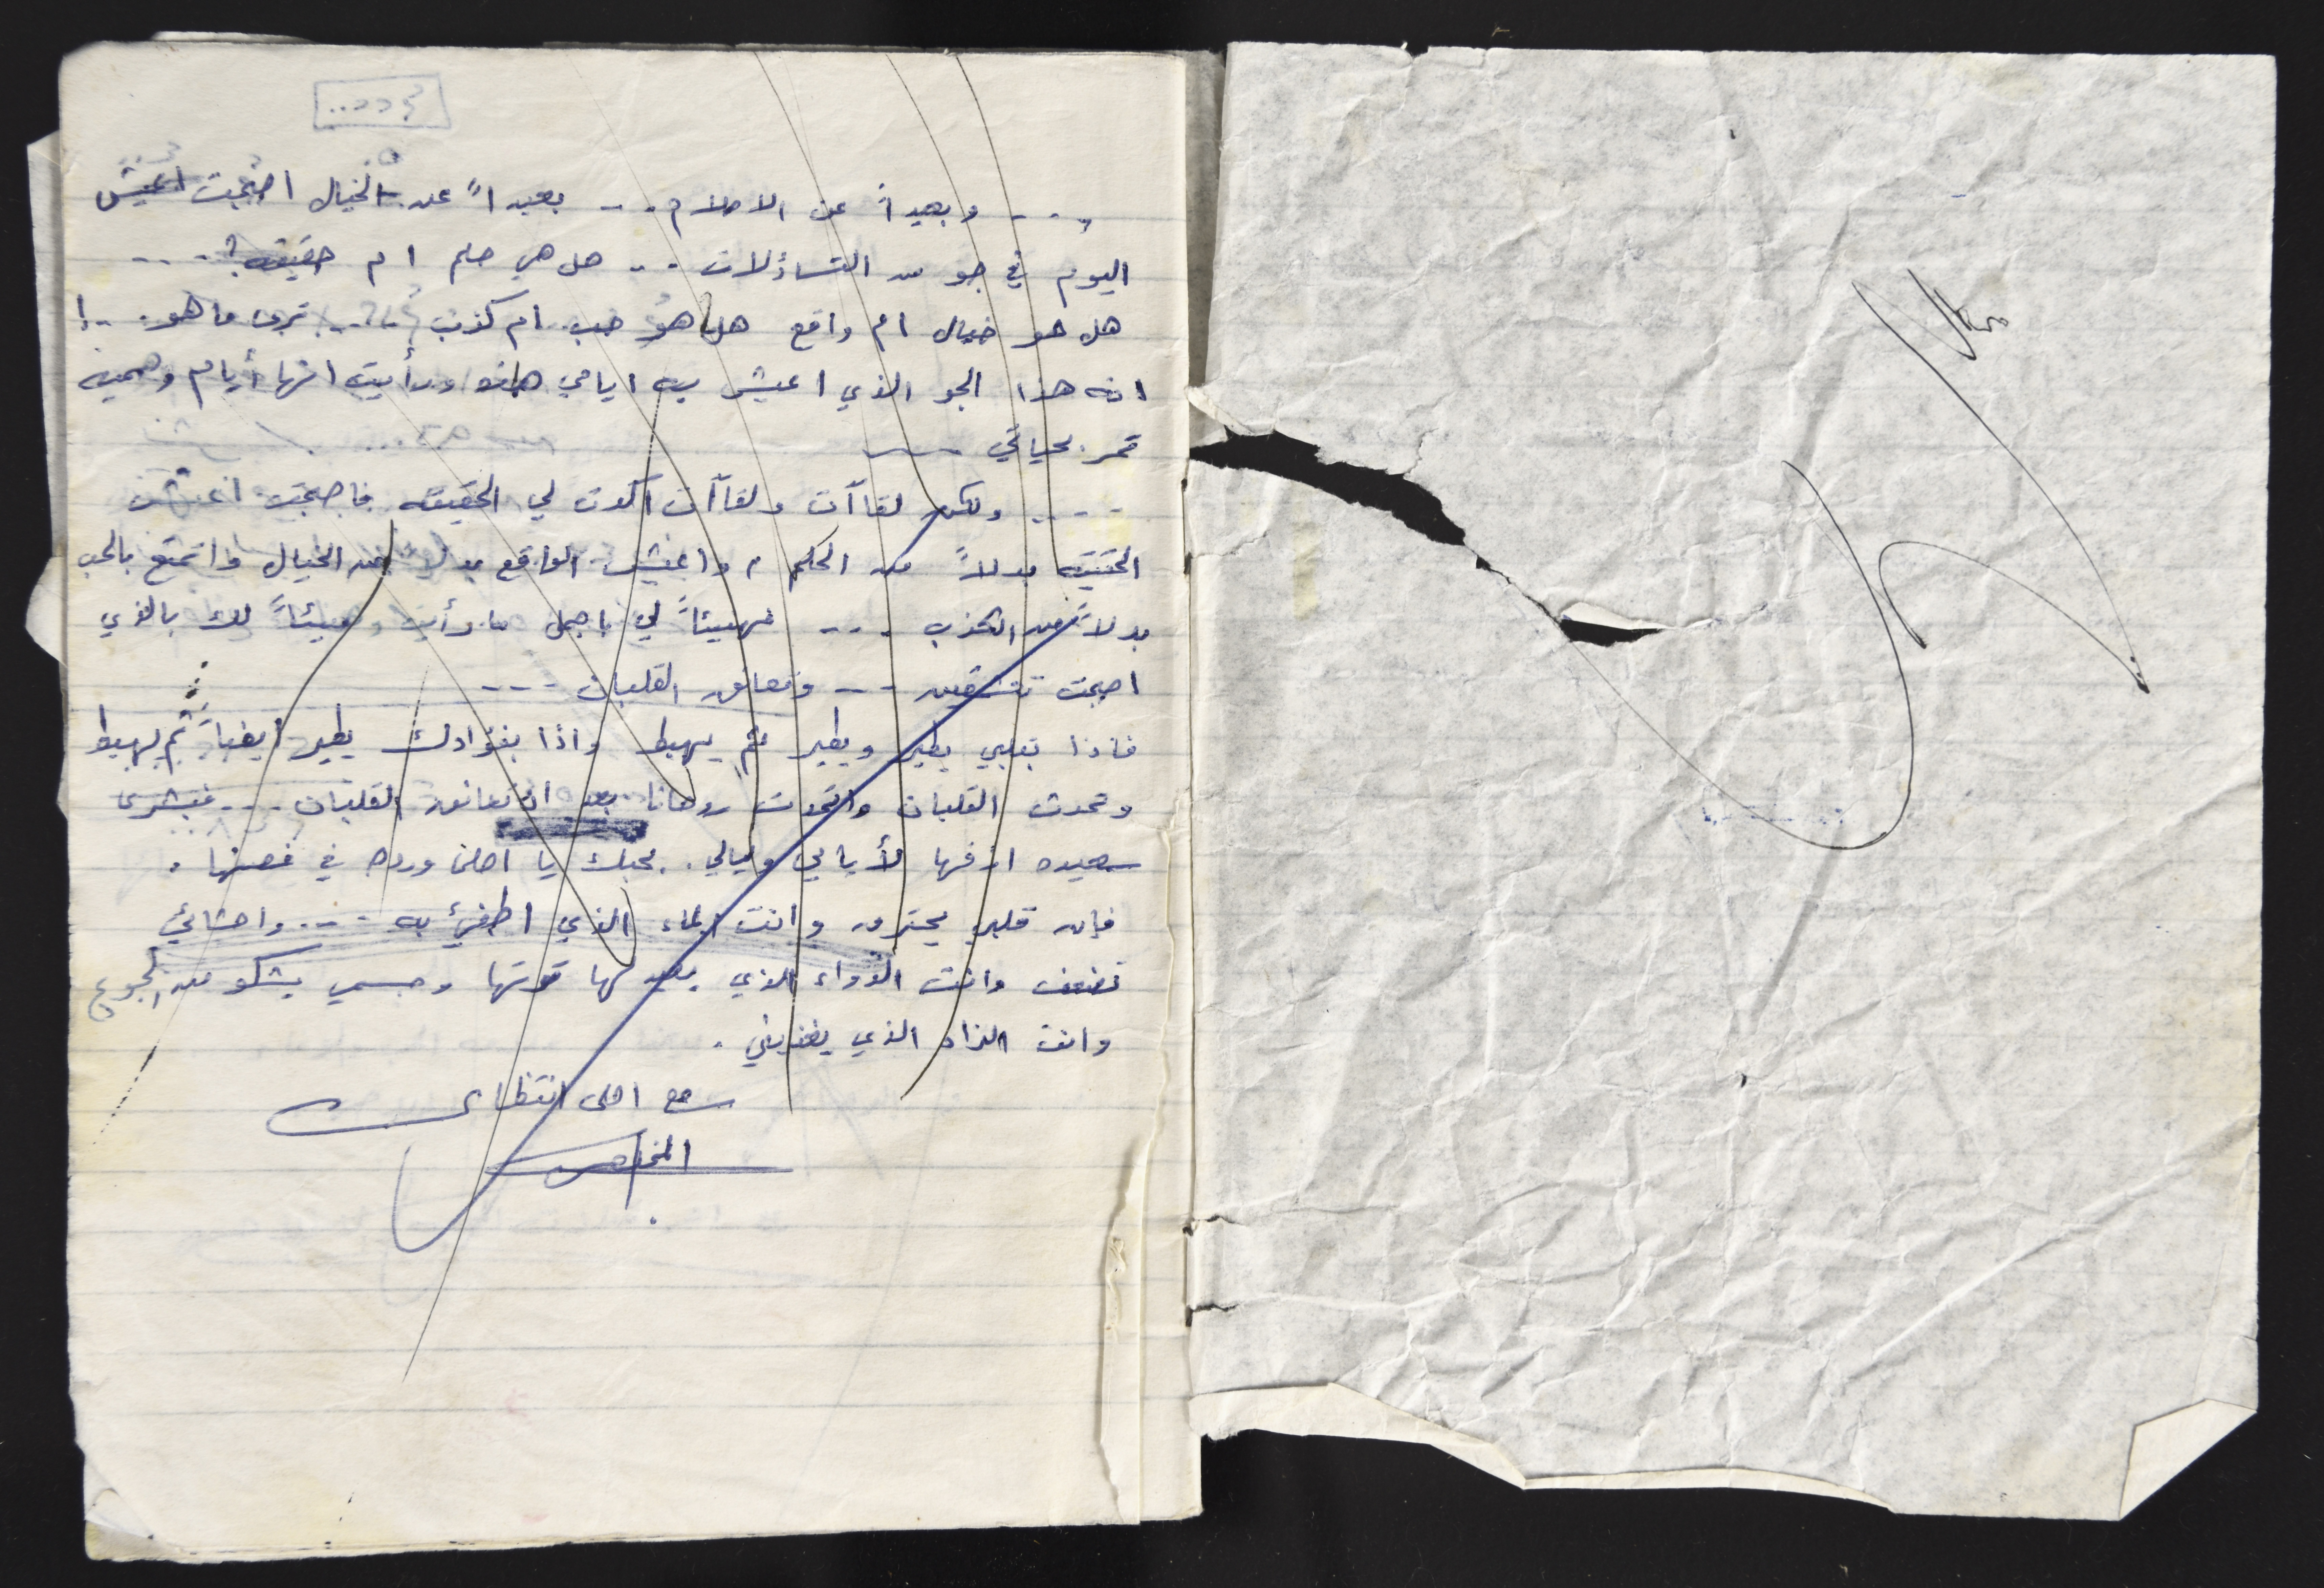 و... وبعيداً عن الاحلام... بعيداً عن الخيال اصبحت اعيش
اليوم في جو من التساؤلات... هل هي حلم ام حقيقه؟...
هل هو خيال ام واقع هل هو حب ام كذب... ترى ما هو..!
انه هذا الجو الذي اعيش به ايامي هذه ورأيت انها أيام وهميه
تمر بحياتي ...
.... ولكن لقاآت ولقاآت اكدت لي الحقيقه فاصبحت اعيش
الحقيقه بدلاً من الحلم، واعيش الواقع بدلا من الخيال واتمتع بالحب
بدلاً من الكذب ... فهنيئاً لي باجمل ما رأيت وهنيئاً لك بالذي
اصبحت تعشقين ... وتعانق القلبان ...
فاذا بقلبي يطير ويطير ثم يهبط واذا بفؤادك يطير ايضاً ثم يهبط
وتحدث القلبان واتحدت روحانا بعد ان تعانق القلبان... فبشرى
سعيده ازفها لأيامي وليالي.. بحبك يا احلى ورده في غصنها.
فإن قلبي يحترق وانت الماء الذي اطفئ به ... واحشائي
تضعف وانت الدواء الذي يعيد لها قوتها وجسمي يشكو من الجوع
وانت الزاد الذي يغذيني.
مع احلى انتظاري
المخلص